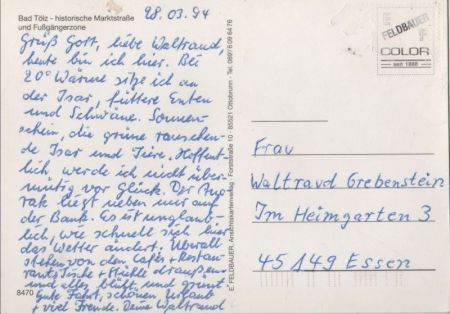 Bad Tölz - historische Marktstraße
und Fußgängerzone
28.03.94
Grüß Gott, liebe Waltraud,
heute bin ich hier. Bei
20° Wärme sitze ich an
der Isar, füttere Enten
und Schwäne. Sonnen-
schein, die grüne rauschen-
de Isar und Tiere. Hoffent-
lich, werde ich nicht über-
mütig vor Glück. Der Ano-
rak liegt neben mir auf
der Bank. Es ist unglaub-
lich, wie schnell sich hier
das Wetter ändert. Überall
stehen vor den Cafés + Restau-
rants Tische + Stühle draußen
und alles blüht und grünt.
Gute Fahrt, schönen Urlaub
+ viel Freude. Deine Waltraud
8470
E. FELDBAUER, Ansichtskartenverlag · Forststraße 10 · 85521 Ottobrunn · Tel. 089/6 09 64 76
FELDBAUER
COLOR
seit 1886
Frau
Waltraud Grebenstein
Im Heimgarten 3
45149 Essen